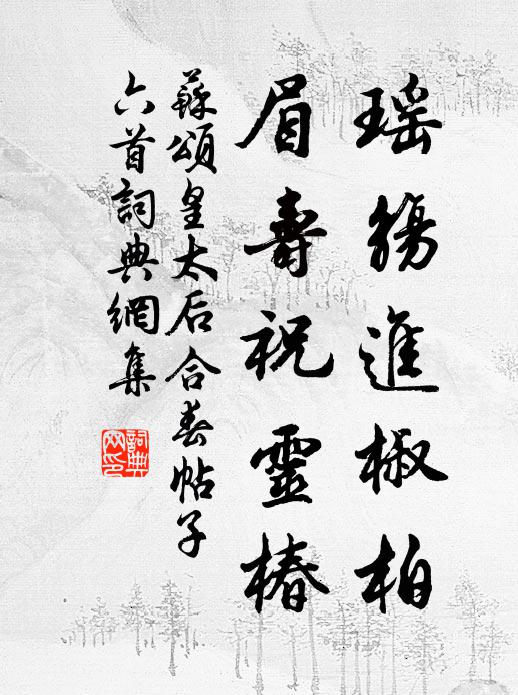 瑶觴進椒柏
眉壽祝靈椿
蘇頌皇太后合春帖子
六首詞典網集
詞典
网印